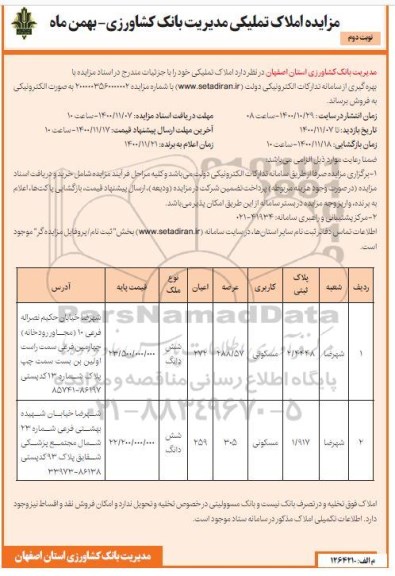 مزایده املاک تملیکی مدیریت بانک کشاورزی-بهمن ماه
نوبت دوم
مدیریت بانک کشاورزی استان اصفهان در نظر دارد املاک تملیکی خود را با جزئیات مندرج در اسناد مزایده با
بهره‌گیری از سامانه تدارکات الکترونیکی دولت (www.setadiran.ir) با شماره مزایده به صورت الکترونیکی
به فروش برساند.
زمان انتشار در سایت: ۱۴۰۰/۱۰/۲۹-ساعت ۰۸
مهلت دریافت اسناد مزایده: ۱۴۰۰/۱۱/۰۷-ساعت ۱۰
تاریخ بازدید: تا ۱۴۰۰/۱۱/۰۷
آخرین مهلت ارسال پیشنهاد قیمت: ۱۴۰۰/۱۱/۱۷-ساعت ۱۰
زمان بازگشایی: ۱۴۰۰/۱۱/۱۸-ساعت ۱۰
زمان اعلام به برنده: ۱۴۰۰/۱۱/۲۱
ضمنا رعایت موارد ذیل الزامی می‌باشد:
۱-برگزاری مزایده صرفا از طریق سامانه تدارکات الکترونیکی دولت می‌باشد و کلیه مراحل فرآیند مزایده شامل خرید و دریافت اسناد
مزایده (در صورت وجود هزینه مربوطه) پرداخت تضمین شرکت در مزایده (ودیعه)، ارسال پیشنهاد قیمت، بازگشایی پاکت‌ها، اعلام
به برنده، واریز وجه مزایده در بستر سامانه از این طریق امکان پذیر می‌باشد.
۲-مرکز پشتیبانی و راهبری سامانه: ۴۱۹۳۴-۰۲۱
اطلاعات تماس دفاتر ثبت نام سایر استان‌ها، در سایت سامانه (www.setadiran.ir) بخش"ثبت نام/پروفایل مزایده گر" موجود
است.
ردیف شعبه پلاک ثبتی کاربری عرصه اعیان نوع ملک قیمت پایه آدرس
۱ شهرضا ۲/۲۴۴۸ مسکونی ۲۸۸/۵۷ ۲۷۲ شش دانگ ۲۳/۵۰۰/۰۰۰/۰۰۰ شهرضا خیابان حکیم نصراله فرعی ۱۰ (مجاور رودخانه) چهارمین فرعی سمت راست اولین بن بست سمت چپ پلاک شماره ۱۳ کدپستی ۸۶۱۹۷-۸۵۷۴۱
۲ شهرضا ۱/۹۱۷ مسکونی ۳۰۵ ۲۵۹ شش دانگ ۲۲/۲۰۰/۰۰۰/۰۰۰ شهرضا خیابان شهیده بهشتی فرعی شماره ۲۳ شمال مجتمع پزشکی شقایق پلاک ۹۳ کدپستی ۸۶۱۳۸-۳۳۹۷۳
ParsNamadData
پایگاه اطلاع رسانی مناقصه و مزایده
۰۲۱-۸۸۳۴۹۶۷۰-۵
املاک فوق تخلیه و در تصرف بانک نیست و بانک مسوولیتی در خصوص تخلیه و تحویل ندارد و امکان فروش نقد و اقساط نیز وجود
دارد. اطلاعات تکمیلی املاک مذکور در سامانه ستاد موجود است.
م الف: ۱۲۶۴۲۱۰
مدیریت بانک کشاورزی استان اصفهان